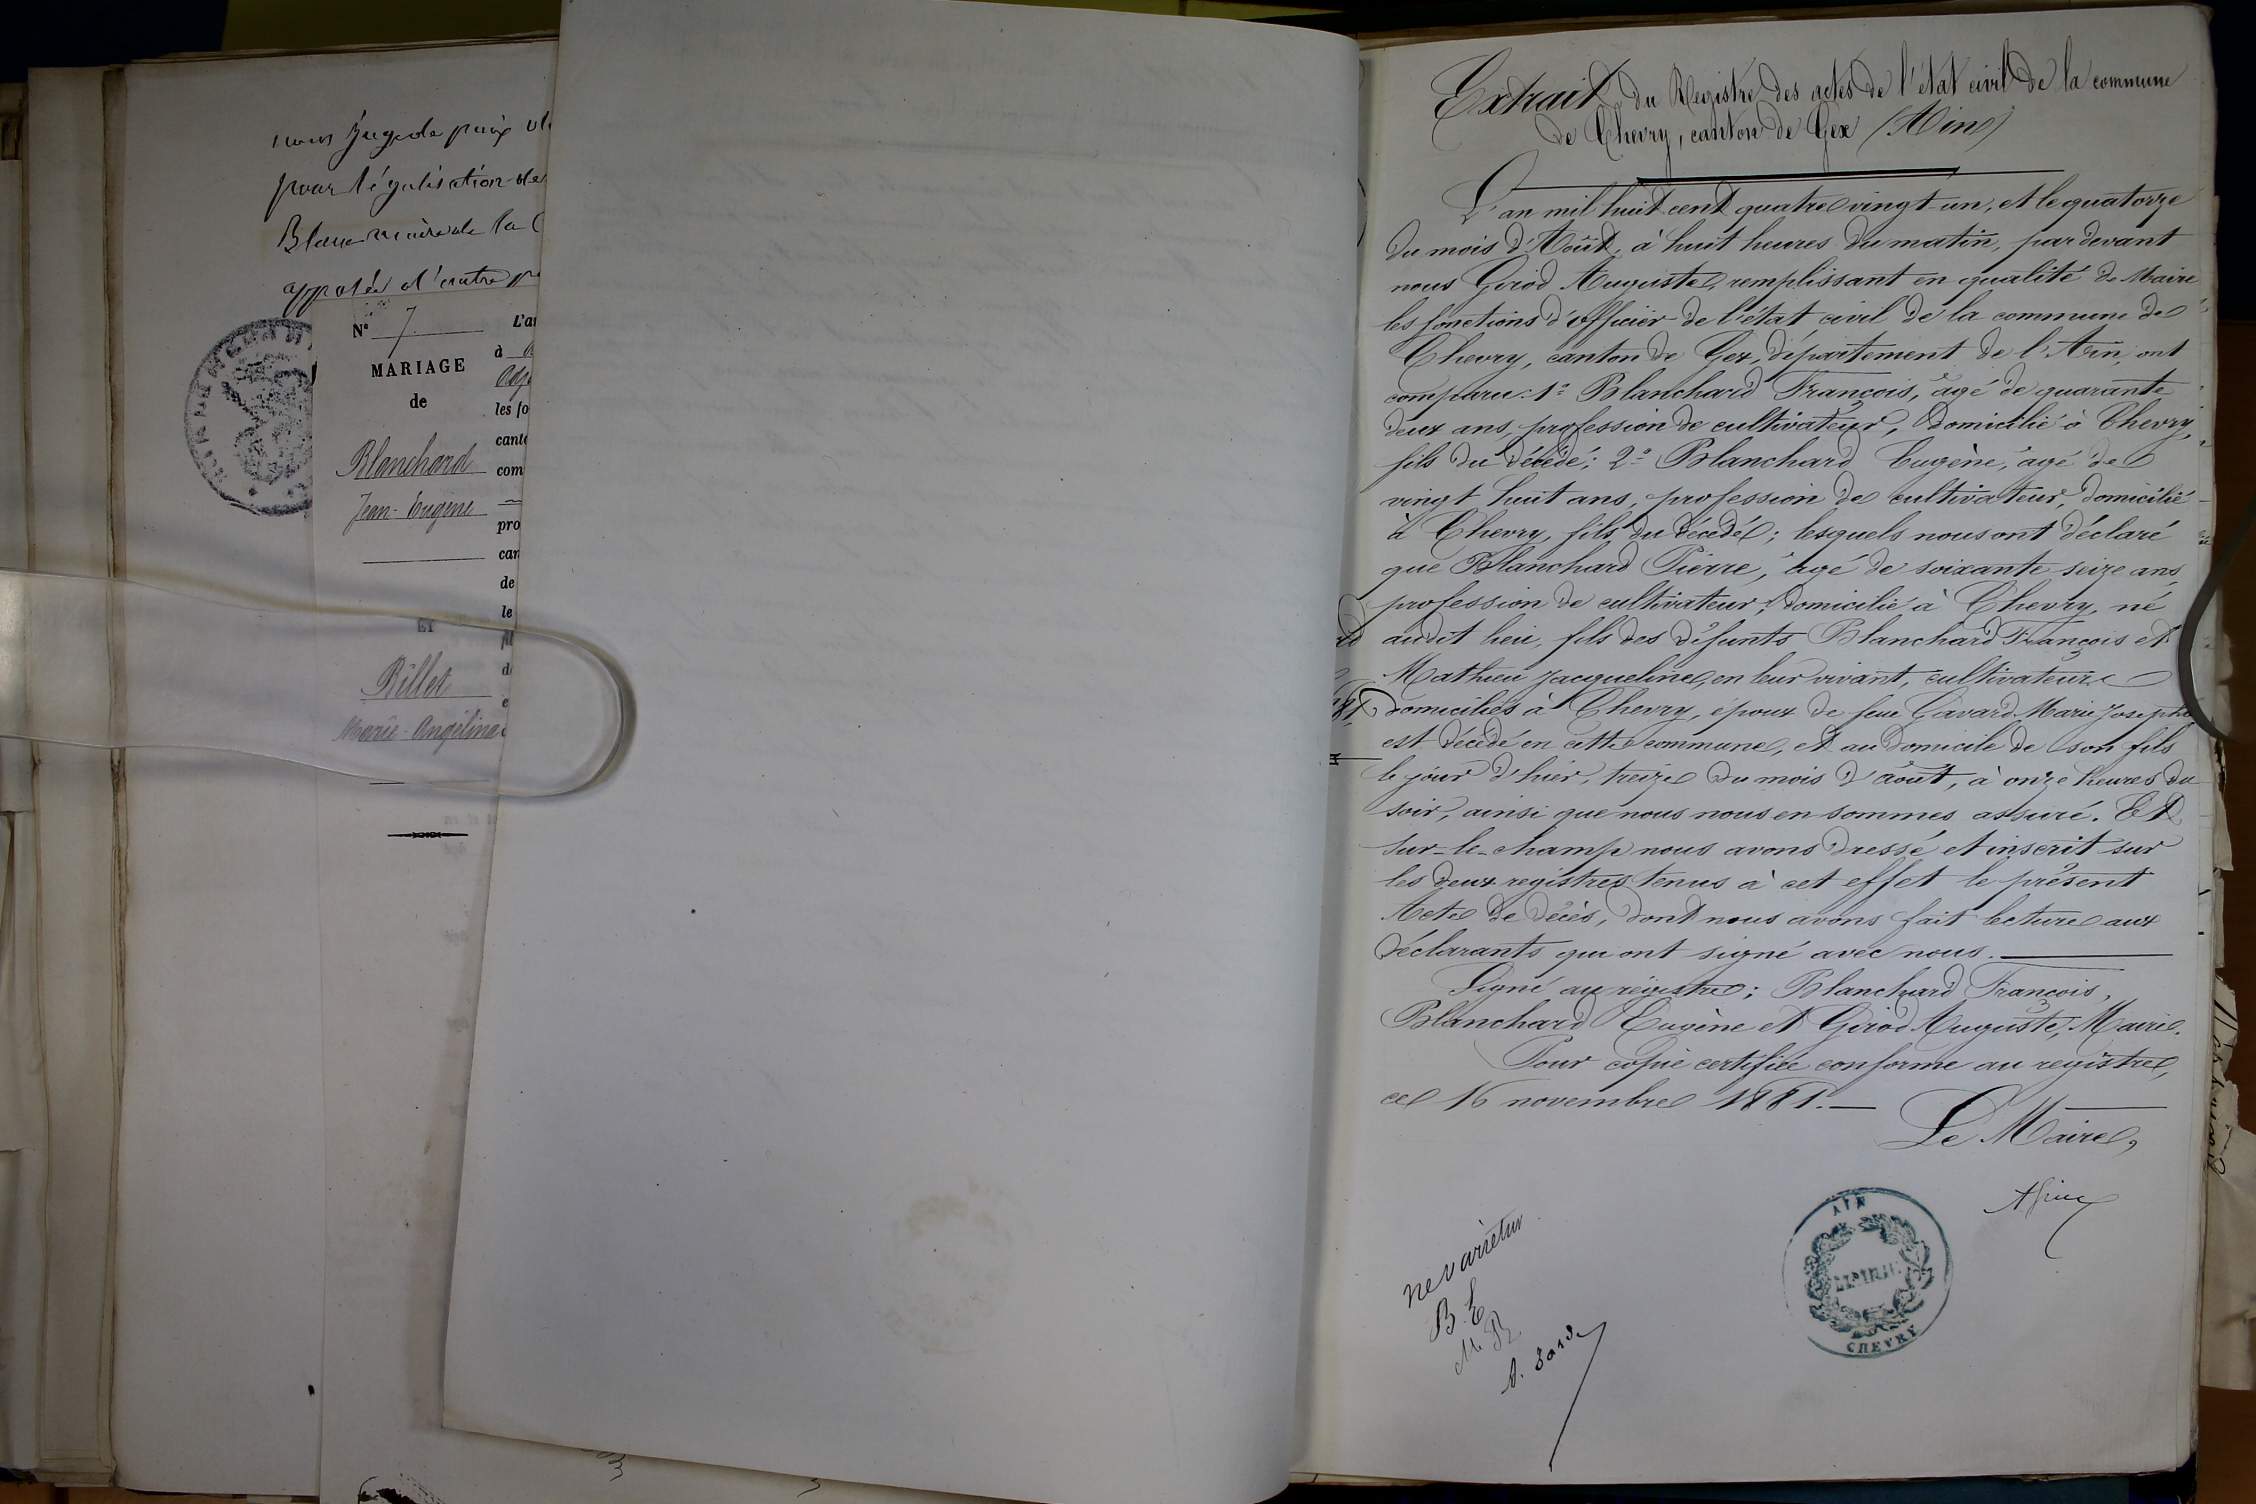 nous Juge de paix
pour légalisation de
Blanc maire de la
apposée d'autre
N° 7
MARIAGE
de
Blanchard
Jean-Eugène
ET
Billet
Marie-Angéline
L'a
à
les fo
canto
com
pro
can
de
le
Extrait du Registre des actes de l'état civil de la commune
de Chevry, canton de Gex (Ain)
L'an mil huit cent quatre vingt-un, et le quatorze
du mois d'Août, à huit heures du matin, par devant
nous Girod Auguste, remplissant en qualité de Maire
les fonctions d'officier de l'état civil de la commune de
Chevry, canton de Gex, département de l'Ain, ont
comparu: 1° Blanchard François, âgé de quarante
deux ans, profession de cultivateur, domicilié à Chevry,
fils du décédé; 2° Blanchard Eugène, âgé de
vingt huit ans, profession de cultivateur, domicilié
à Chevry, fils du décédé; lesquels nous ont déclaré
que Blanchard Pierre, âgé de soixante seize ans,
profession de cultivateur, domicilié à Chevry, né
audit lieu, fils des défunts Blanchard François et
Mathieu Jacqueline, en leur vivant, cultivateurs
domiciliés à Chevry, époux de feue Gavard Marie Josephe
est décédé en cette commune, et au domicile de son fils
le jour d'hier, treize du mois d'août, à onze heures du
soir, ainsi que nous nous en sommes assuré. Et
sur-le-champ nous avons dressé et inscrit sur
les deux registres tenus à cet effet le présent
Acte de décès, dont nous avons fait lecture aux
déclarants qui ont signé avec nous.
Signé au registre: Blanchard François,
Blanchard Eugène et Girod Auguste, Maire.
Pour copie certifiée conforme au registre,
ce 16 novembre 1881.
Le Maire,
ne varietur
B. E
M. B
AIN
MAIRIE
CHEVRY